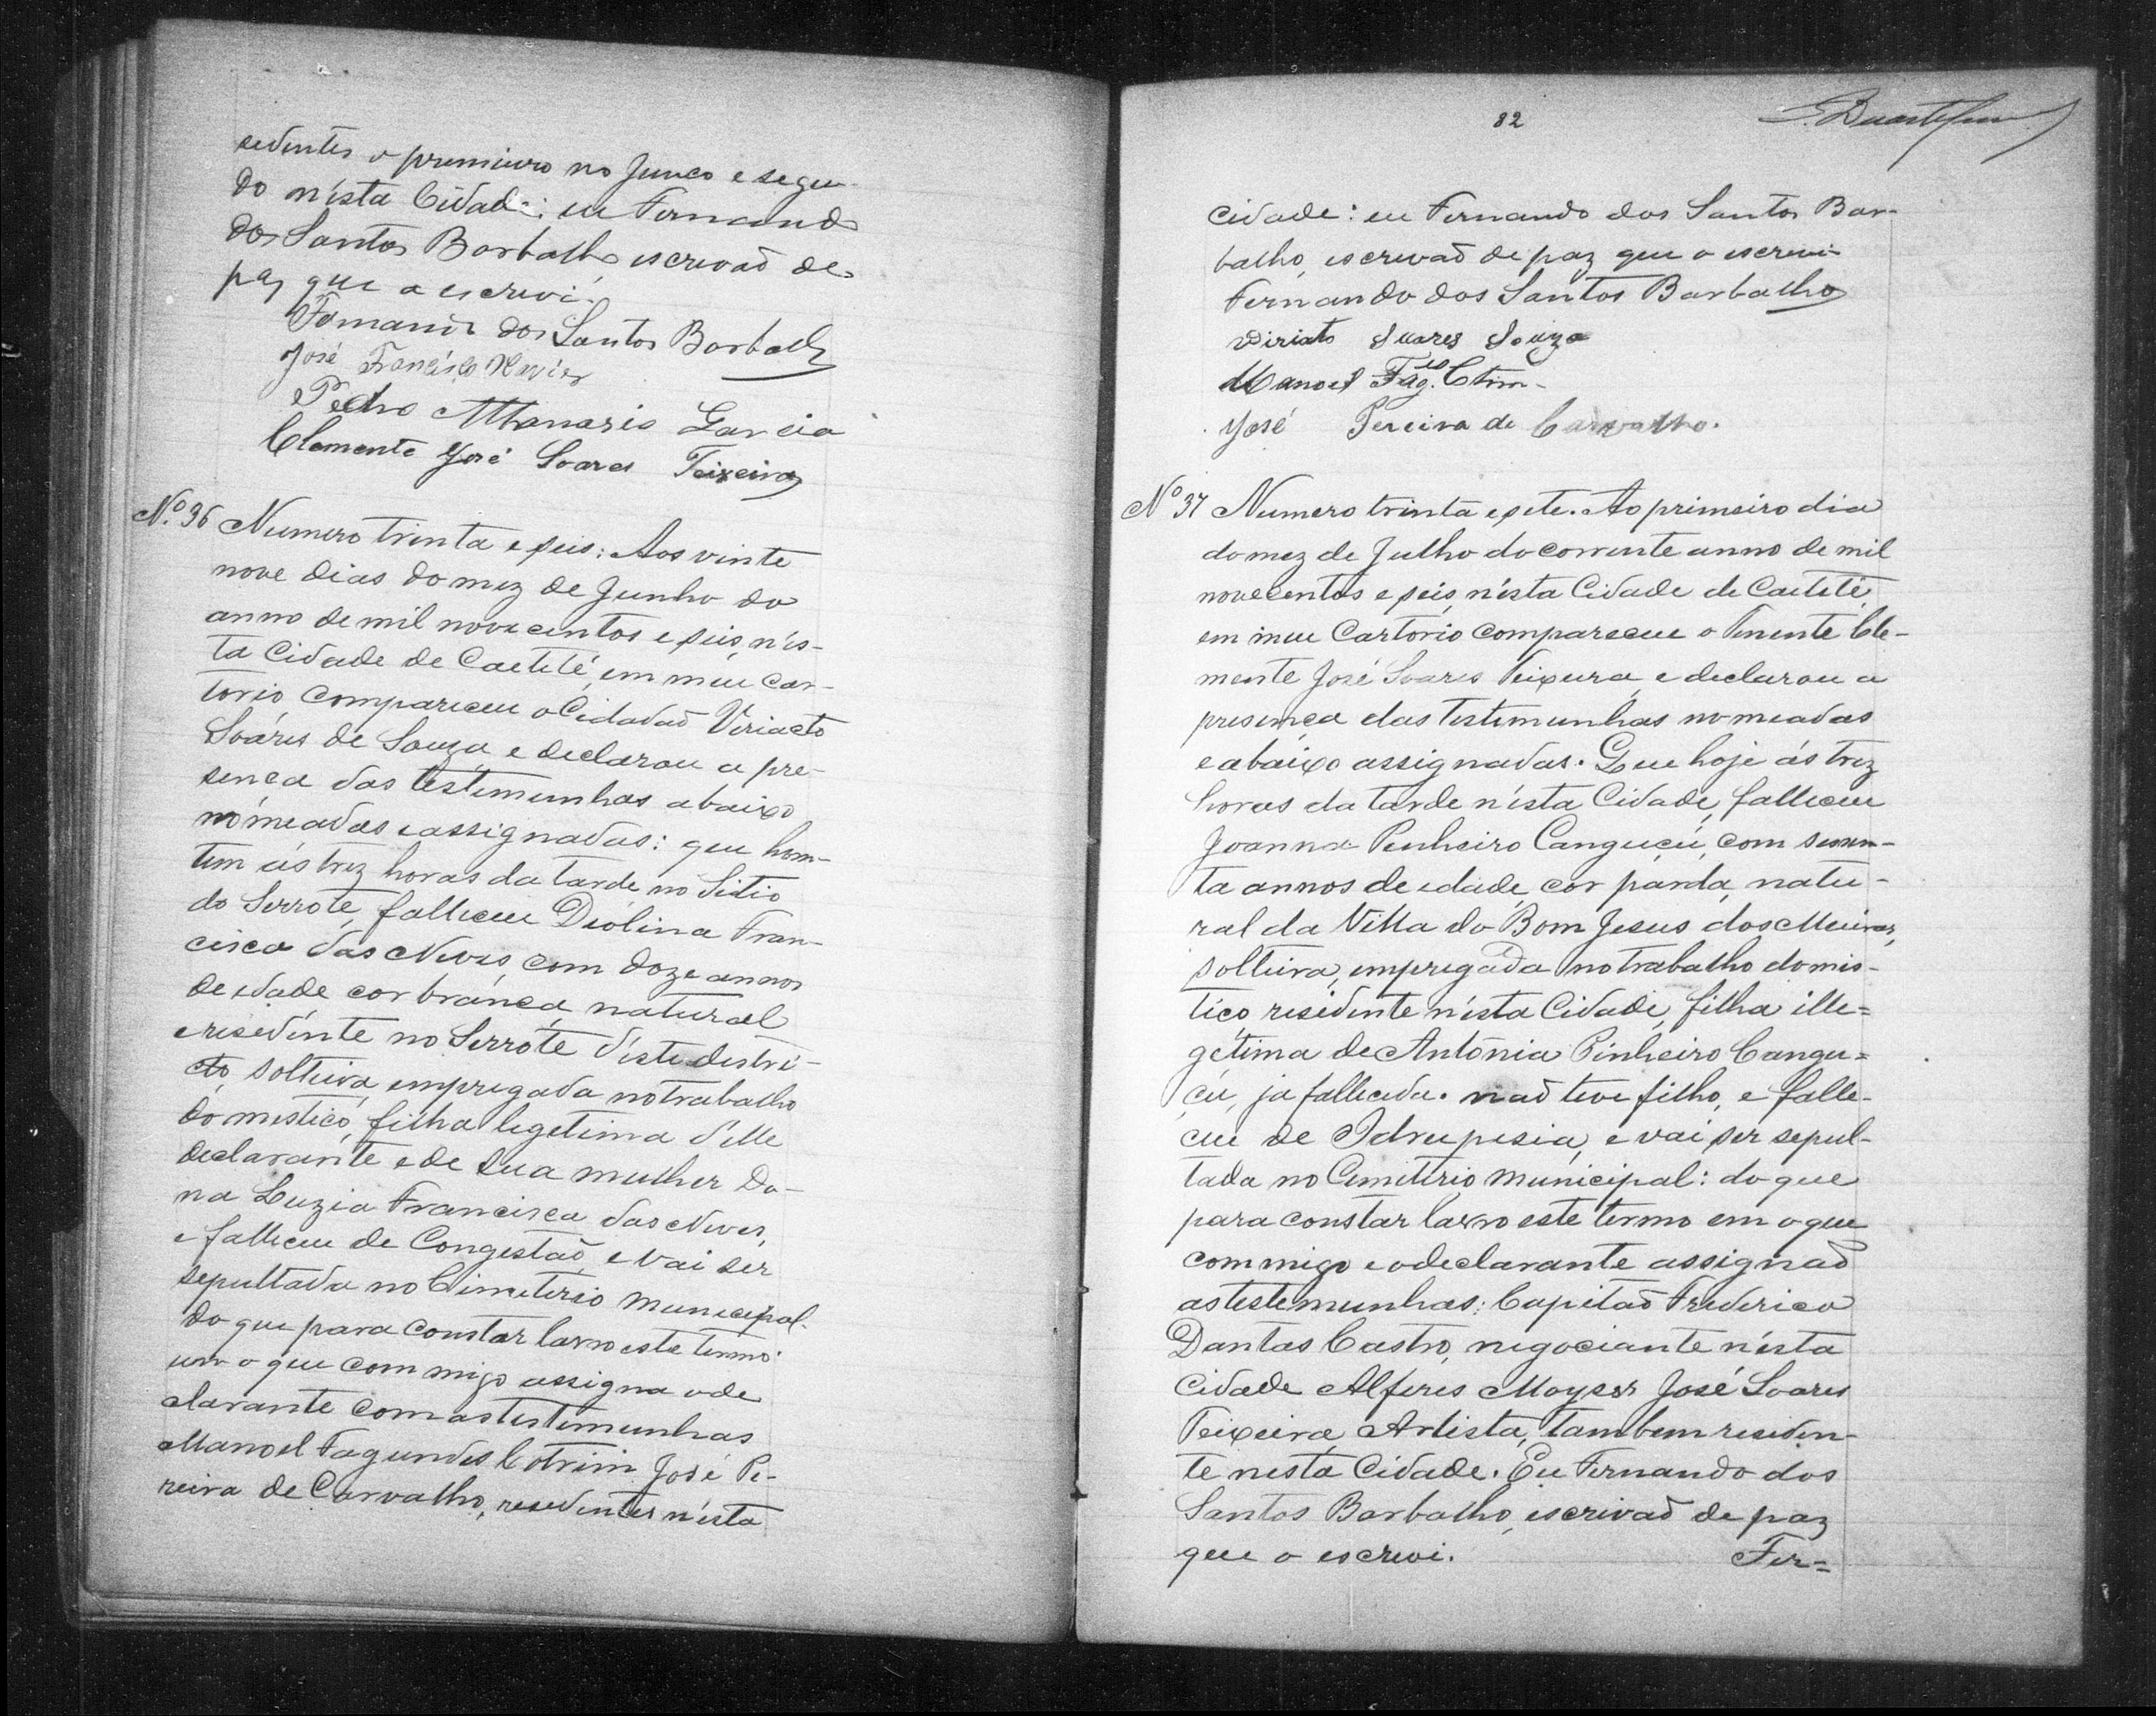 sidentes o premiuro no Junco e segun-
do n'ésta Cidade: eu Fernando
dos Santos Barbalho, escrivaõ de
paz que o escrevi.
Fernando dos Santos Barbalho
José Francisco Xavier
Pedro Athanazio Garcia
Clemente José Soares Teixeira
Nº. 36 Numero trinta e seis: Aos vinte
nove dias do mez de Junho do
anno de mil novecentos e seis, n'és-
ta Cidade de Caetité, em meu Car-
torio, compareceu o Cidadaõ Viriacto
Soáres de Souza, e declarou a pre-
sença das testemunhas abaixo
nomeadas e assignadas: que hon-
tem ás trez horas da tarde, no Sitio
do Serrote, falleceu Diolina Fran-
cisca das Neves, com doze annos
de edade, cor branca, natural
e residente no Serrote d'éste distri-
cto, solteira, empregada no trabalho
domestico, filha legetima d'elle
declarante e de sua mulher Do-
na Luzia Francisca das Neves,
e falleceu de Congestaõ, e vai ser
sepultada no Cimeterio Municipal.
do que para constar lavro este termo
em o que commigo assigna o de
clarante com as testemunhas
Manoel Fagundes Cotrim José Pe-
reira de Carvalho, residentes n'ésta
82
cidade: eu Fernando dos Santos Bar-
balho, escrevaõ de paz que o escrevi-
Fernando dos Santos Barbalho
Viriato Suares Souza
Manoel Fag.es Ctrim-
José Pereira de Carvalho.
Nº 37 Numero trinta e sete. Ao primeiro dia
do mez de Julho do corrente anno de mil
novecentos e seis, n'ésta Cidade de Caetité,
em meu Cartorio compareceu o Tenente Cle-
mente José Soares Teixeira, e declarou a
presença das testemunhas nomeadas
e abaixo assignadas. Que hoje ás trez
horas da tarde n'ésta Cidade, falleceu
Joanna Penheiro Canguçú, com sessen-
ta annos de edade, cor parda, natu-
ral da Villa do Bom Jesus dos Meiras,
solteira, empregada no trabalho domis-
tico, residente n'ésta Cidade, filha ille=
getima de Antónia Pinheiro Cangu=
çú, ja fallecida. naõ teve filho, e falle-
ceu de Idrupesia, e vai ser sepul-
tada no Cemiterio Municipal: do que
para constar lavro este termo em o que
commigo e o declarante assignaõ
as testemunhas: Capitaõ Frederico
Dantas Castro, negociante n'ésta
Cidade Alferes Moyses José Soares
Teixeira, Artista, tambem residen-
te nesta Cidade. Eu Fernando dos
Santos Barbalho, escrivaõ de paz
que o escrevi. Fer=